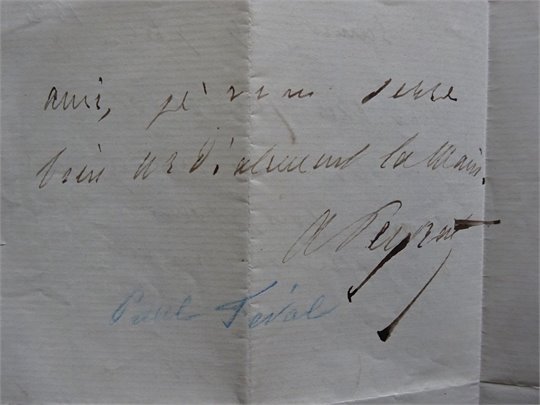 ami, je vous serre
bien cordialement la main.
A Peyrat
Paul Feval